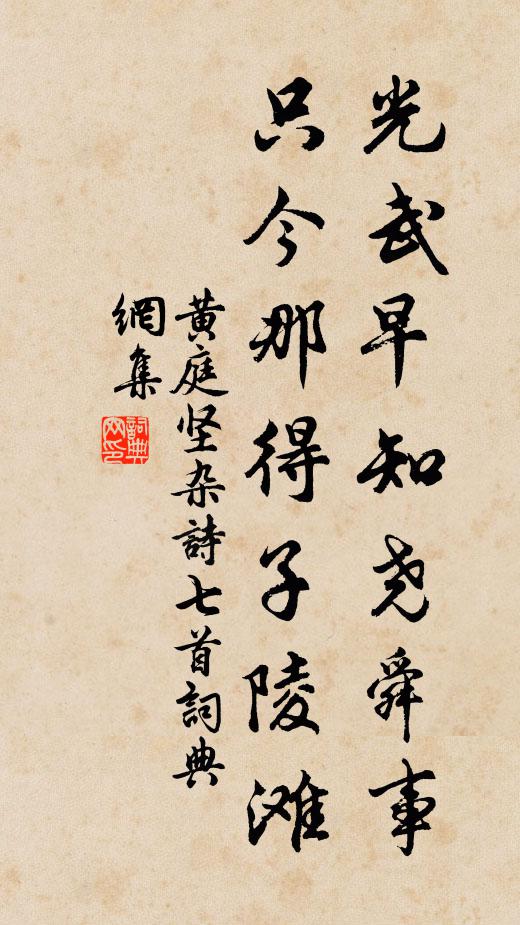 光武早知尧舜事
只今那得子陵滩
黄庭坚杂詩七首詞典
網集
詞典
网印